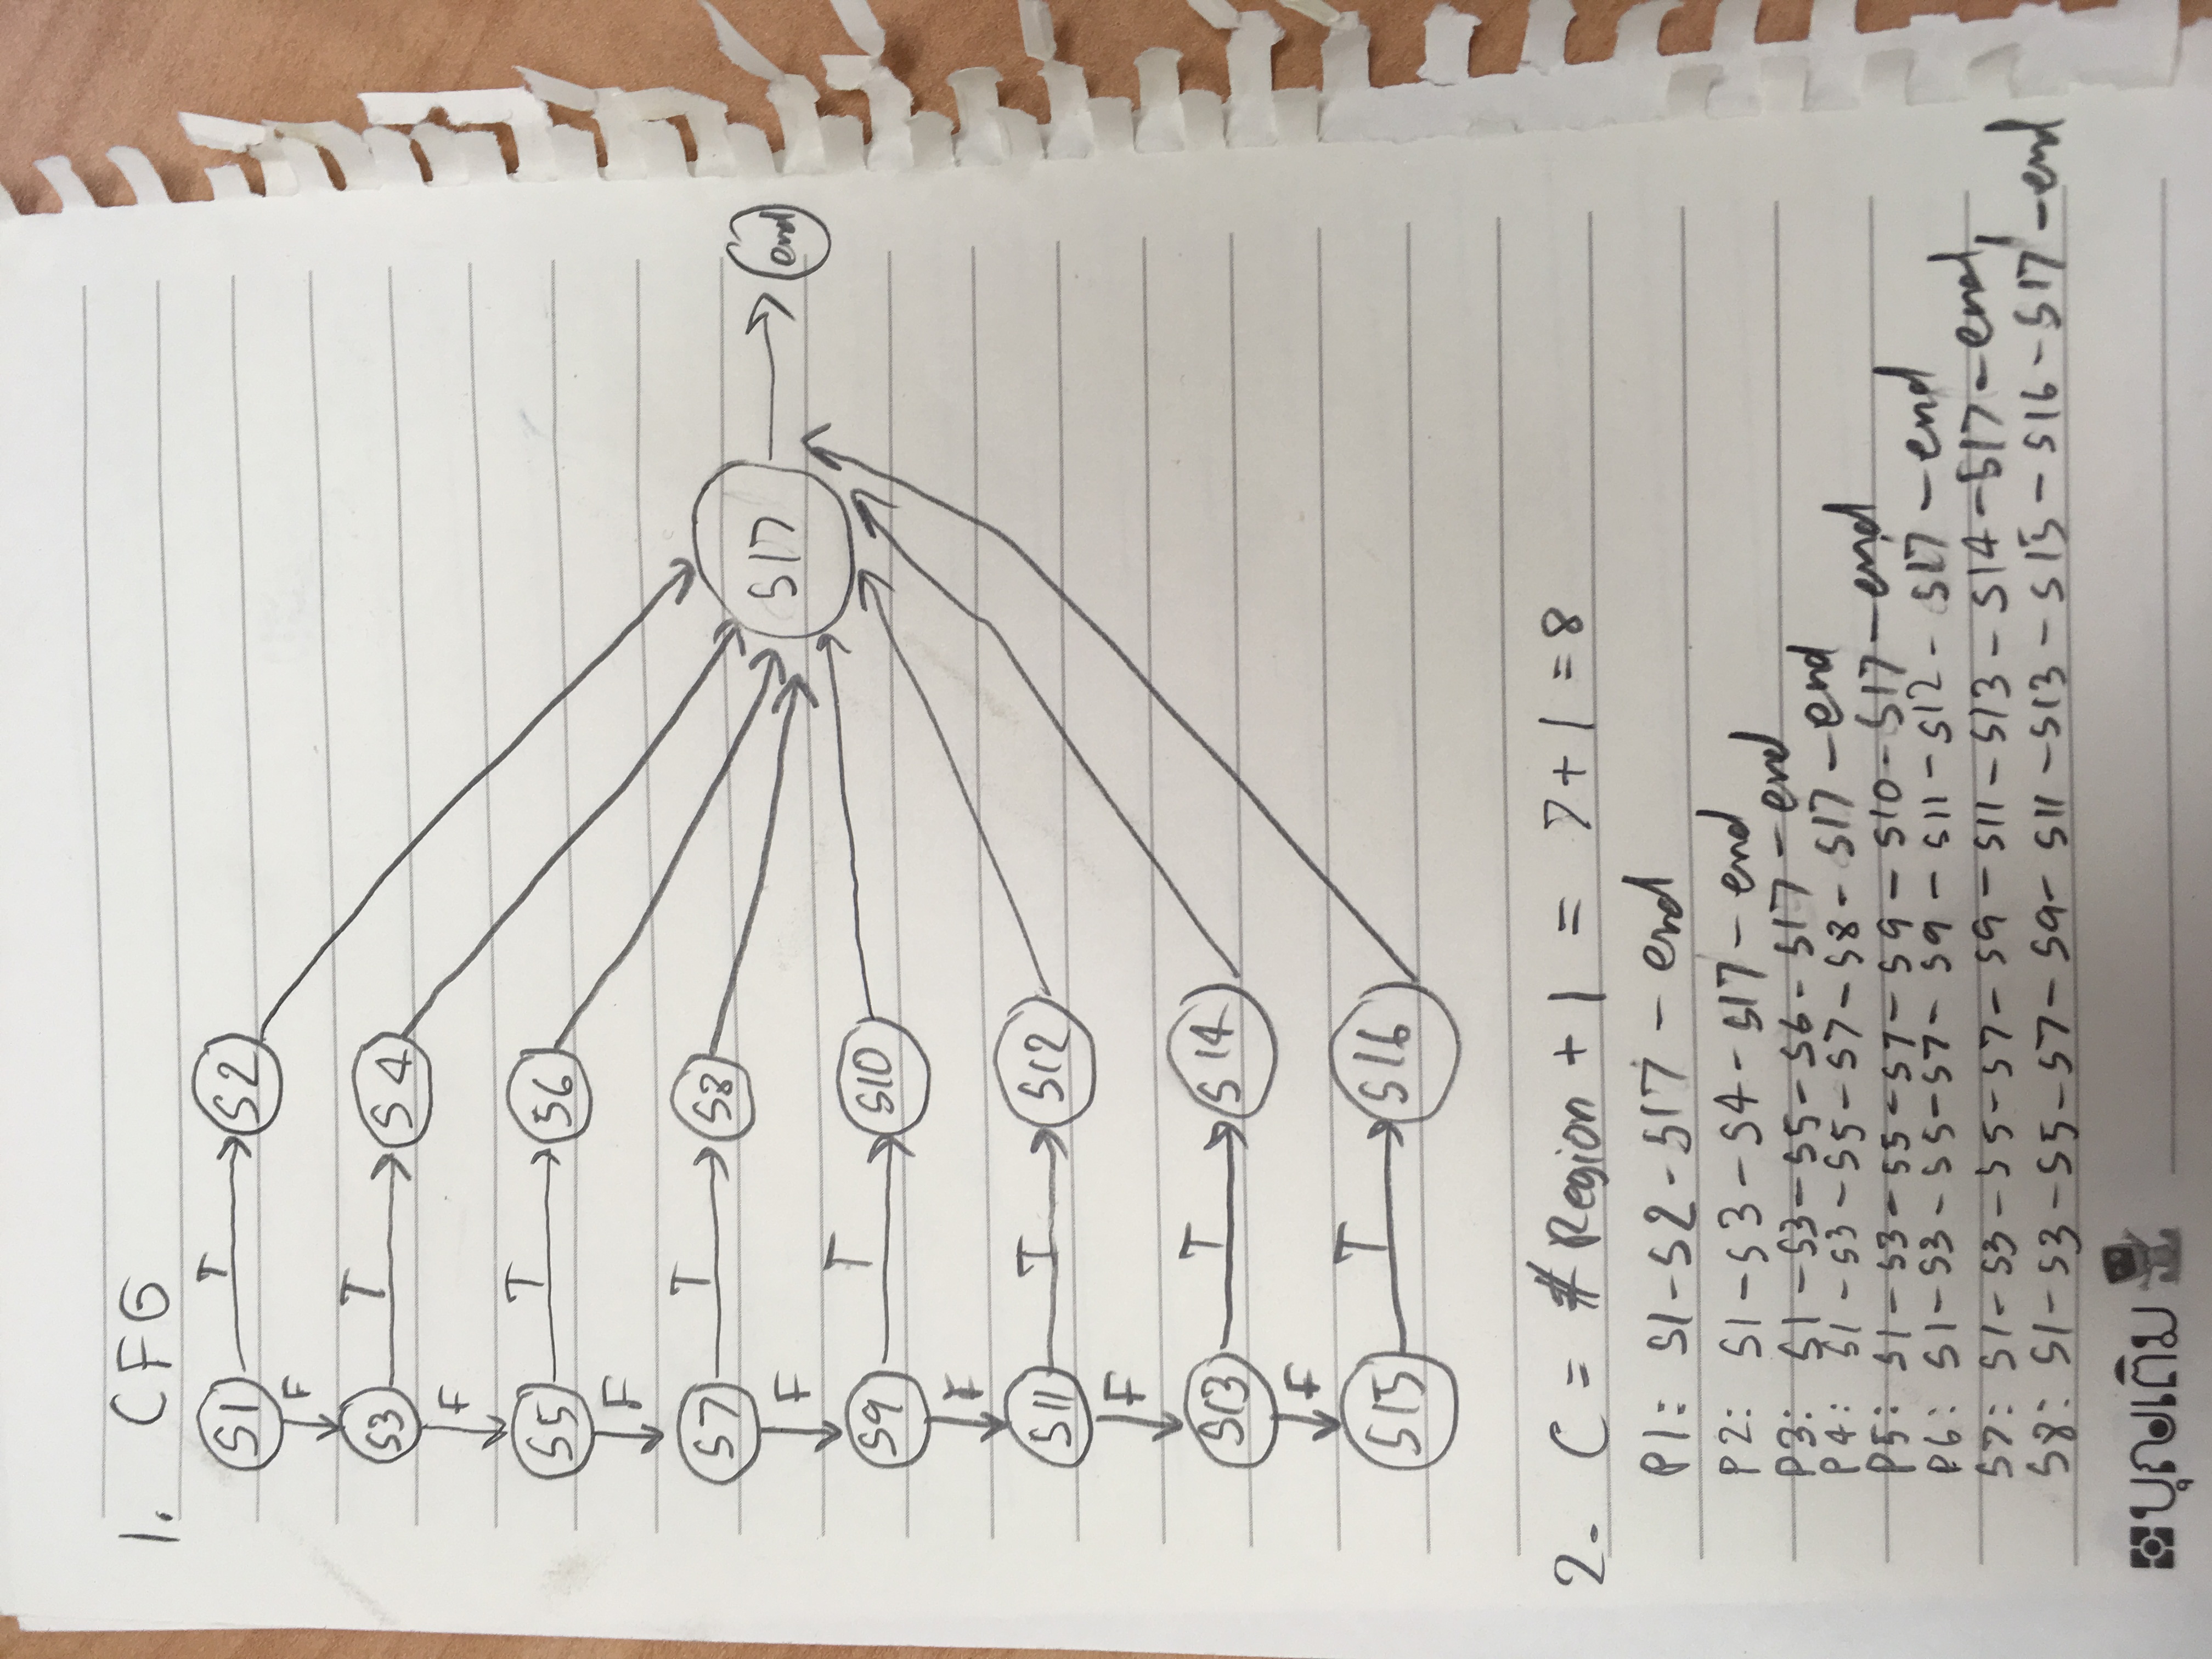 1. CFG
S1 T S2
F
S3 T S4
F
S5 T S6
F
S7 T S8
S17 end
F
S9 T S10
F
S11 T S12
F
S13 T S14
F
S15 T S16
2. C = # Region + 1 = 7 + 1 = 8
P1: S1 - S2 - S17 - end
P2: S1 - S3 - S4 - S17 - end
P3: S1 - S3 - S5 - S6 - S17 - end
P4: S1 - S3 - S5 - S7 - S8 - S17 - end
P5: S1 - S3 - S5 - S7 - S9 - S10 - S17 - end
P6: S1 - S3 - S5 - S7 - S9 - S11 - S12 - S17 - end
S7: S1 - S3 - S5 - S7 - S9 - S11 - S13 - S14 - S17 - end
S8: S1 - S3 - S5 - S7 - S9 - S11 - S13 - S15 - S16 - S17 - end
บุญเติม